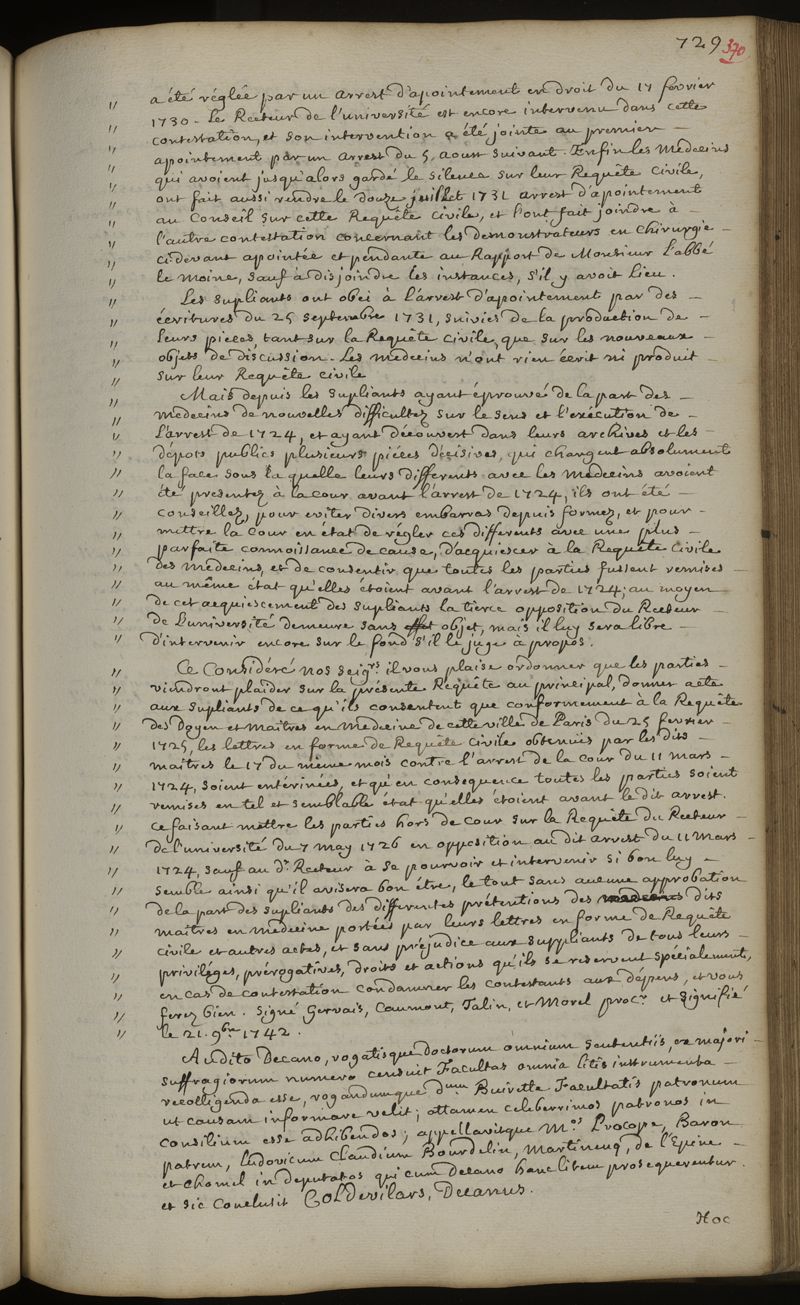 729 370
" a été réglée par un arrest d'apointement en droit du 17 février
" 1730. Le Recteur de l'université est encore intervenu dans cette
" contestation, et son intervention a été jointe au premier —
" apointement par un arrest du 5 aoust suivant. Enfin les Medecins
" qui avoient jusqu'alors gardé le silence sur leur Requête Civile,
" ont fait aussi rendre le douze juillet 1731 arrest d'apointement
" au Conseil sur cette Requête civile, et l'ont fait joindre à —
" l'autre contestation concernant les demonstrateurs en chirurgie —
" cidevant apointée et pendante au Rapport de Monsieur l'abbé
" le moine, sauf à disjoindre les instances, s'il y avoit lieu.
" Les supliants ont obei à l'arrest d'apointement par des —
" écritures du 25 septembre 1731, suivies de la production de —
" leurs pieces, tant sur la Requête civile, que sur les nouveaux —
" objets de discussion. Les medecins n'ont rien écrit ni produit —
" sur leur Requête civile
" Mais depuis les supliants ayant éprouvé de la part des —
" medecins de nouvelles difficultez sur le sens et l'exécution de —
" l'arrest de 1724, et ayant découvert dans leurs archives et les —
" dépots publics plusieurs piéces décisives, qui changent absolument
" la face sous la quelle leurs differents avec les medecins avoient
" été presentez à la cour avant l'arrest de 1724, ils ont été —
" conseillez, pour eviter divers embarras depuis formez, et pour —
" mettre la Cour en état de régler ces differents avec une plus —
" parfaite connoissance de cause, d'acquiescer à la Requête Civile
" des medecins, et de consentir que toutes les parties fussent remises —
" au même état qu'elles étoient avant l'arrest de 1724; au moyen
" de cet acquiescement des supliants la tierce opposition du Recteur —
" de l'université demeure sans effet objet, mais il luy sera libre —
" d'intervenir encore sur le fond s'il le juge à propos.
" Ce Consideré nos seigrs. il vous plaise ordonner que les parties —
" viendront plaider sur la présente Requête au principal, donner acte
" aux supliants de ce qu'ils consentent que conformement à la Requête
" des Doyen et maîtres en medecine de cette ville de Paris du 25 fevrier —
" 1725, les lettres en forme de Requête civile obtenuës par les dits —
" maîtres le 17 du même mois contre l'arrest de la cour du 11 mars —
" 1724, soient entérinées, et qu'en consequence toutes les parties soient
" remises en tel et semblable état qu'elles étoient avant le dit arrest.
" ce faisant mettre les parties hors de cour sur la Requête du Recteur —
" de l'université du 7 may 1726 en opposition au dit arrest du 11 mars —
" 1724, sauf au dt. Recteur à se pourvoir et intervenir si bon luy —
" semble ainsi qu'il avisera bon être, le tout sans aucune approbation
" de la part des supliants des differentes prétentions des medecins dits
" maîtres en medecine portées par leurs lettres en forme de Requête
" civile et autres actes, et sans préjudice aux suppliants de tous leurs —
" priviléges, prérogatives, droits et actions qu'ils se reservent spécialement,
" en cas de contestation condamner les contestants aux dépens, et vous
" ferez bien. Signé Gervais, Caumont, Talin, et Morel procr. et signifié
" le 21. 9bre. 1742.
Audito Decano, rogatisque doctorum omnium sententiis, ex majori —
suffragiorum numero censuit Facultas omnia litis instrumenta —
recolligenda esse, rogandumque dnum Buirette Facultatis patronum
ut causam informare velit; attamen celeberrimos patronos in
consilium esse adhibendos; appellavitque Mos. Procope, Baron
patrem, Ludovicum Claudium Bourdelin, Martinenq, de l'Epine —
et Chomel in deputatos qui cum decano hanc litem prosequerentur.
et sic conclusit Col De vilars, Decanus.
Hoc